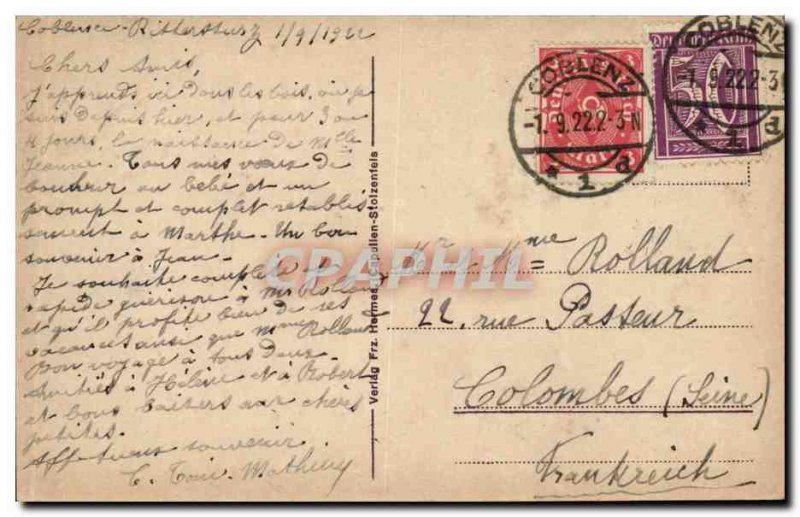 Coblence - Rittersturz 1/9/1922
Chers Amis,
J'apprends ici dans les bois, où je
suis depuis hier, et pour 3 ou
4 jours, la naissance de Mlle
Jeanne. Tous mes vœux de
bonheur au bébé et un
prompt et complet rétablis
sement à Marthe - Un bon
souvenir à Jean -
Je souhaite complète et
rapide guérison à Mr Rolland
et qu'il profite bien de ses
vacances ainsi que Mme Rolland
Bon voyage à tous deux.
Amitiés à Hélène et à Robert
et bons baisers aux chères
petites.
Affectueux souvenir
Verlag Frz. Hermes, Capullen-Stolzenfels
COBLENZ
-1.9.22 2-3N
* 1 d
COBLENZ
-1.9.22 2-3N
* 1 d
Deutsches Reich
50
Mr Mme Rolland
22, rue Pasteur
Colombes (Seine)
Frankreich
CPAPHIL